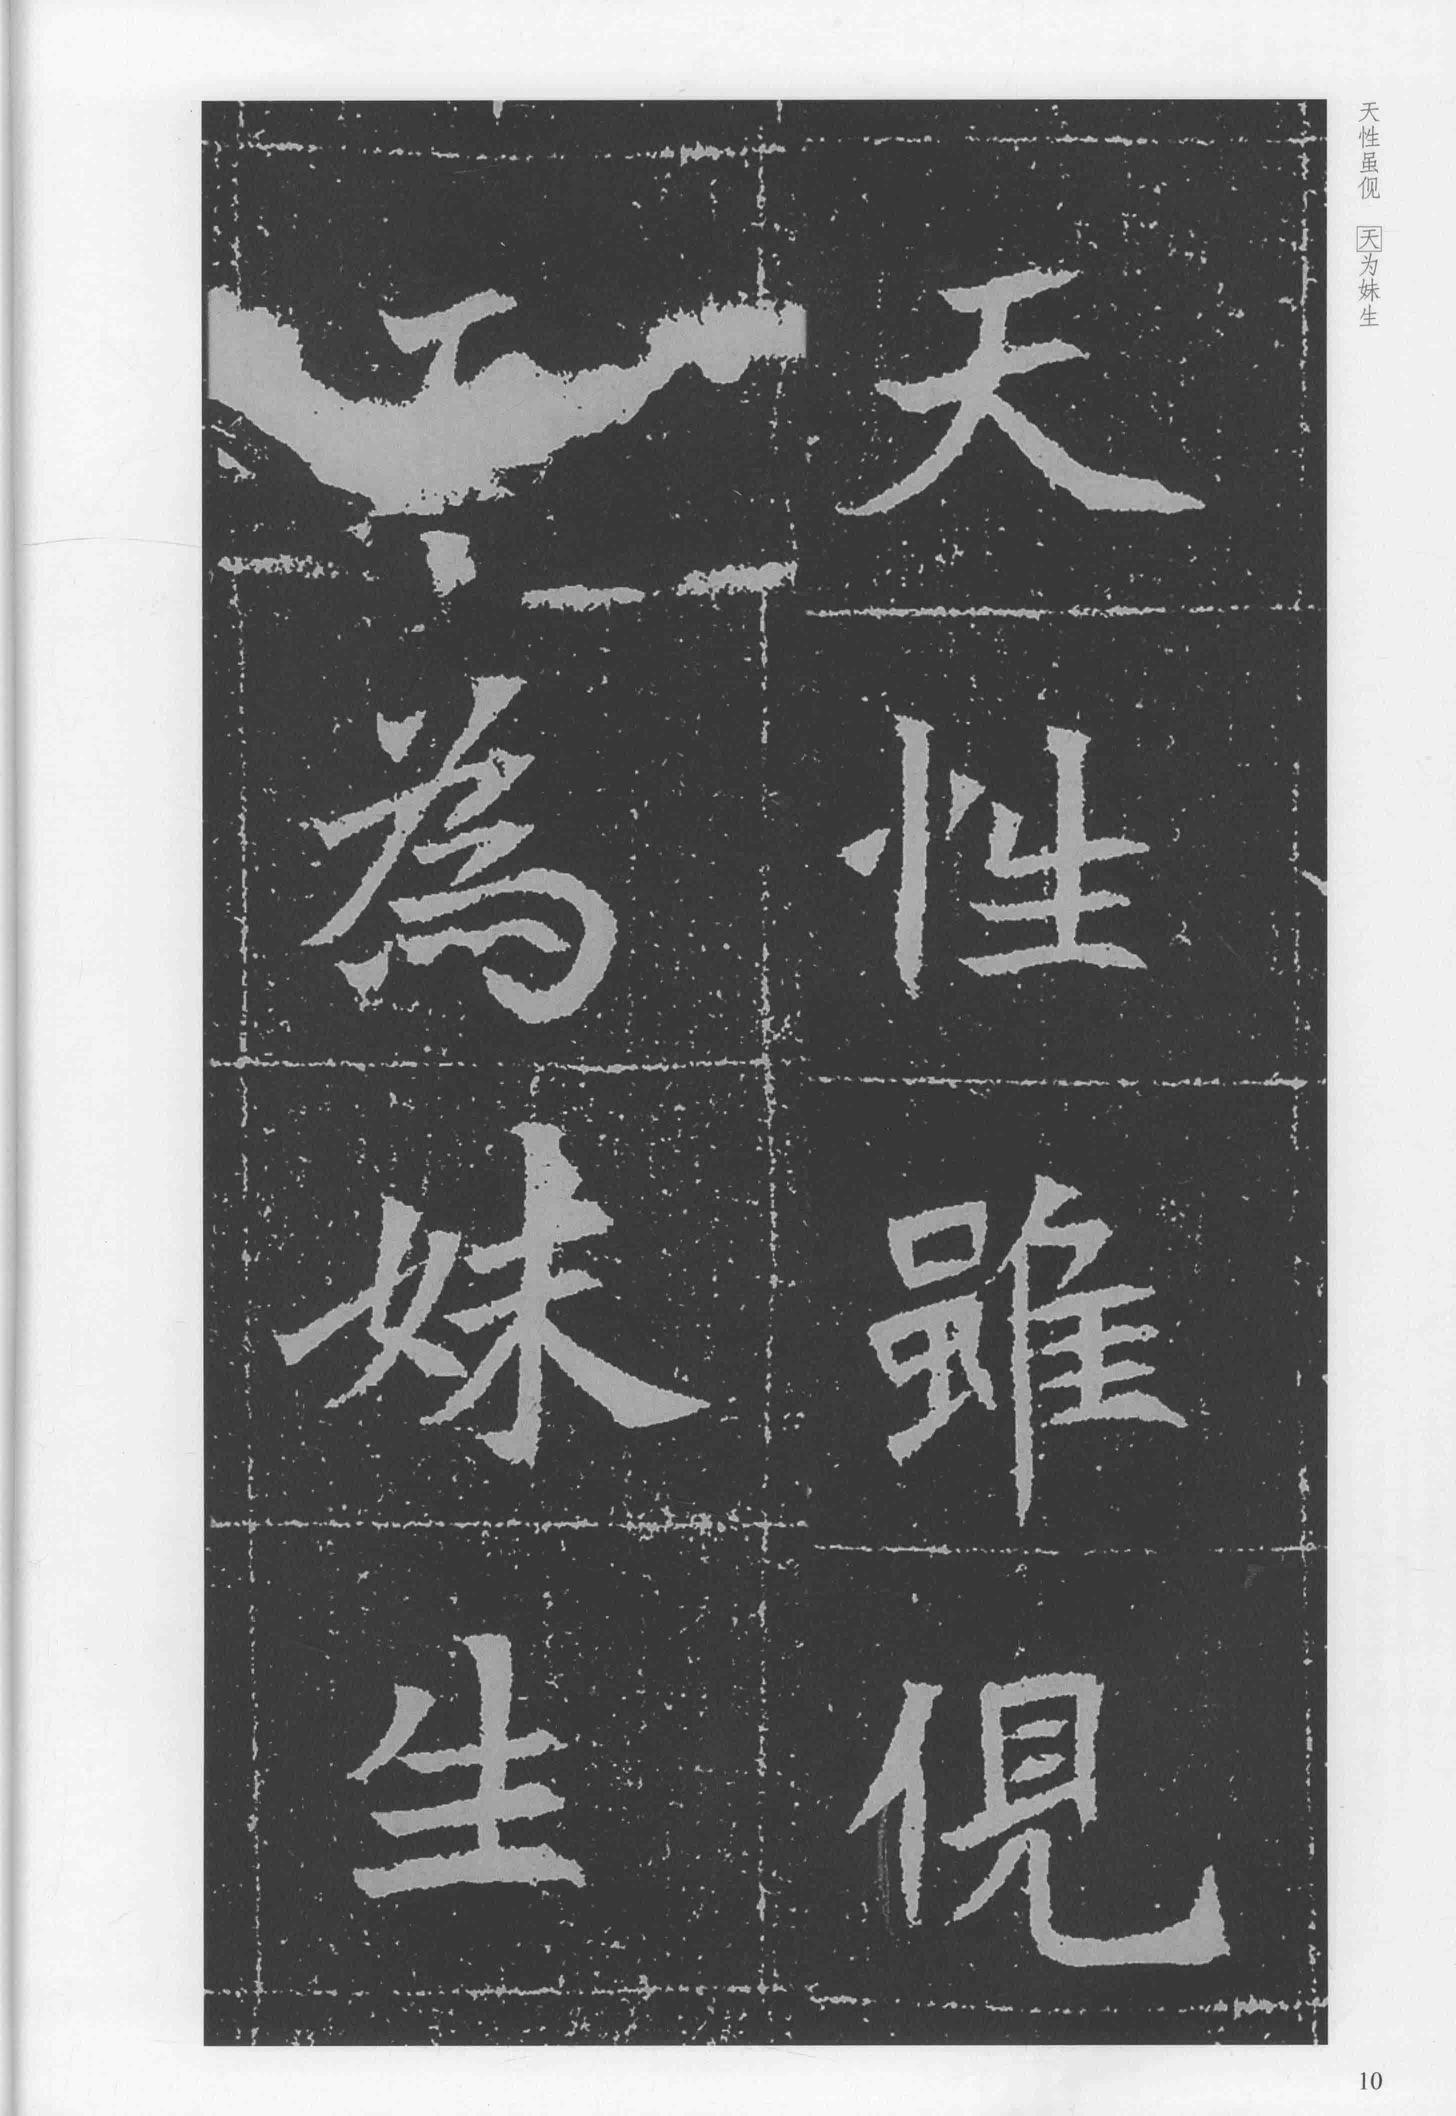 天性虽伣 天为妹生
天性雖俔
天為妹生
10